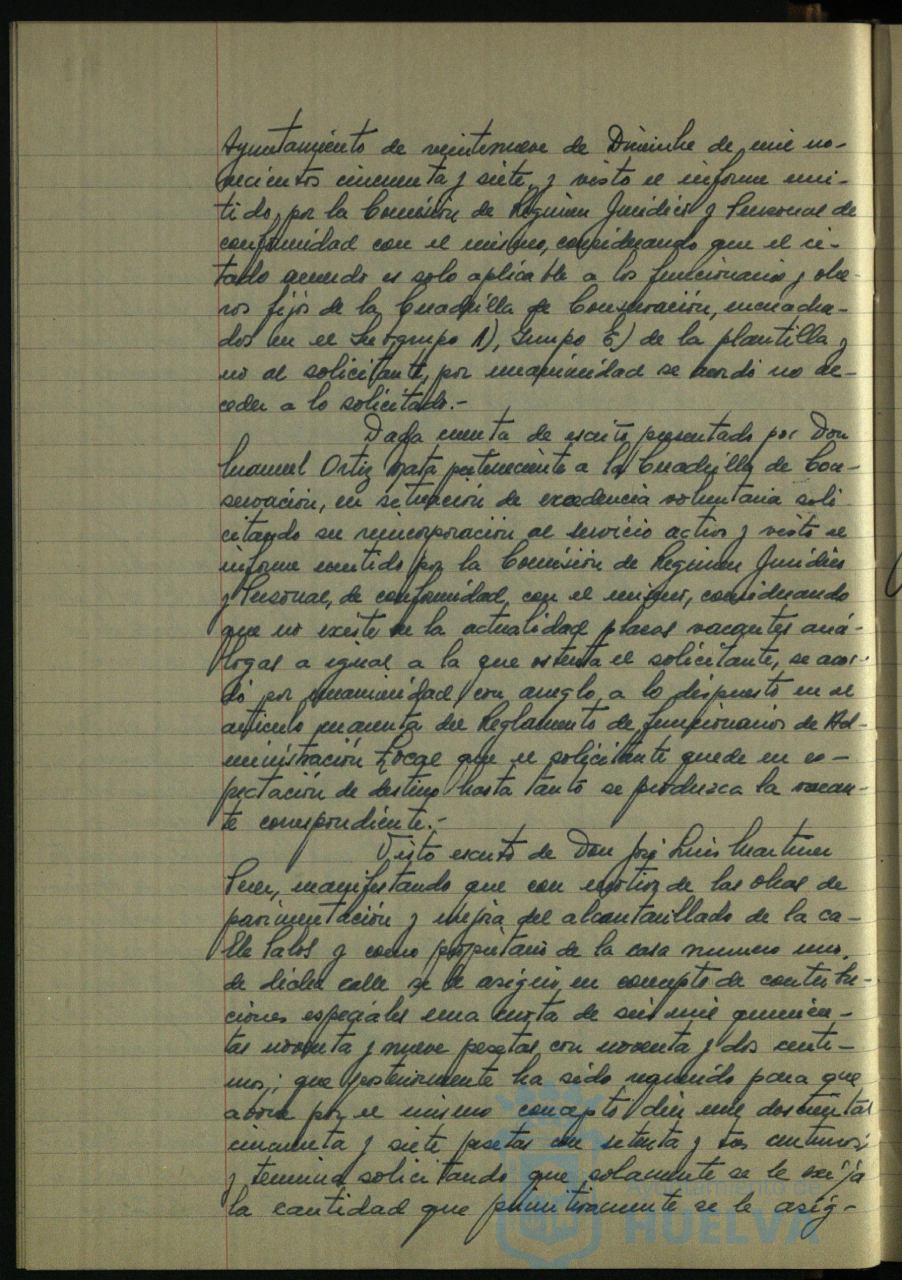 Ayuntamiento de veintinueve de Diciembre de mil no-
vecientos cincuenta y siete, y visto el informe emi-
tido por la Comisión de Régimen Jurídico y Personal de
conformidad con el mismo, considerando que el ci-
tado acuerdo es solo aplicable a los funcionarios y obre-
ros fijos de la Cuadrilla de Conservación, encuadra-
dos en el Subgrupo 1), Grupo E) de la plantilla y
no al solicitante, por unanimidad se acordó no ac-
ceder a lo solicitado.-
Dada cuenta de escrito presentado por Don
Manuel Ortiz Mata perteneciente a la Cuadrilla de Con-
servación, en situación de excedencia voluntaria soli
citando su reincorporación al servicio activo y visto el
informe emitido por la Comisión de Regimen Jurídico
y Personal, de conformidad con el mismo, considerando
que no existe en la actualidad plazas vacantes aná-
logas o igual a la que ostenta el solicitante, se acor-
dó por unanimidad, con arreglo a lo dispuesto en el
artículo cuarenta del Reglamento de funcionarios de Ad-
ministración Local que el solicitante quede en es-
pectación de destino hasta tanto se produzca la vacan-
te correspondiente.-
Visto escrito de Don José Luis Martinez
Perez, manifestando que con motivo de las obras de
pavimentación y mejora del alcantarillado de la ca-
lle Palos y como propietario de la casa numero uno,
de dicha calle se le asignó, en concepto de contribu-
ciones especiales una cuota de seis mil quinien-
tas noventa y nueve pesetas con noventa y dos centi-
mos,; que posteriormente ha sido requerido para que
abone por el mismo concepto diez mil doscientas
cincuenta y siete pesetas con setenta y dos centimos
y termina solicitando que solamente se le exija
la cantidad que primitivamente se le asig-
Ayuntamiento de
HUELVA